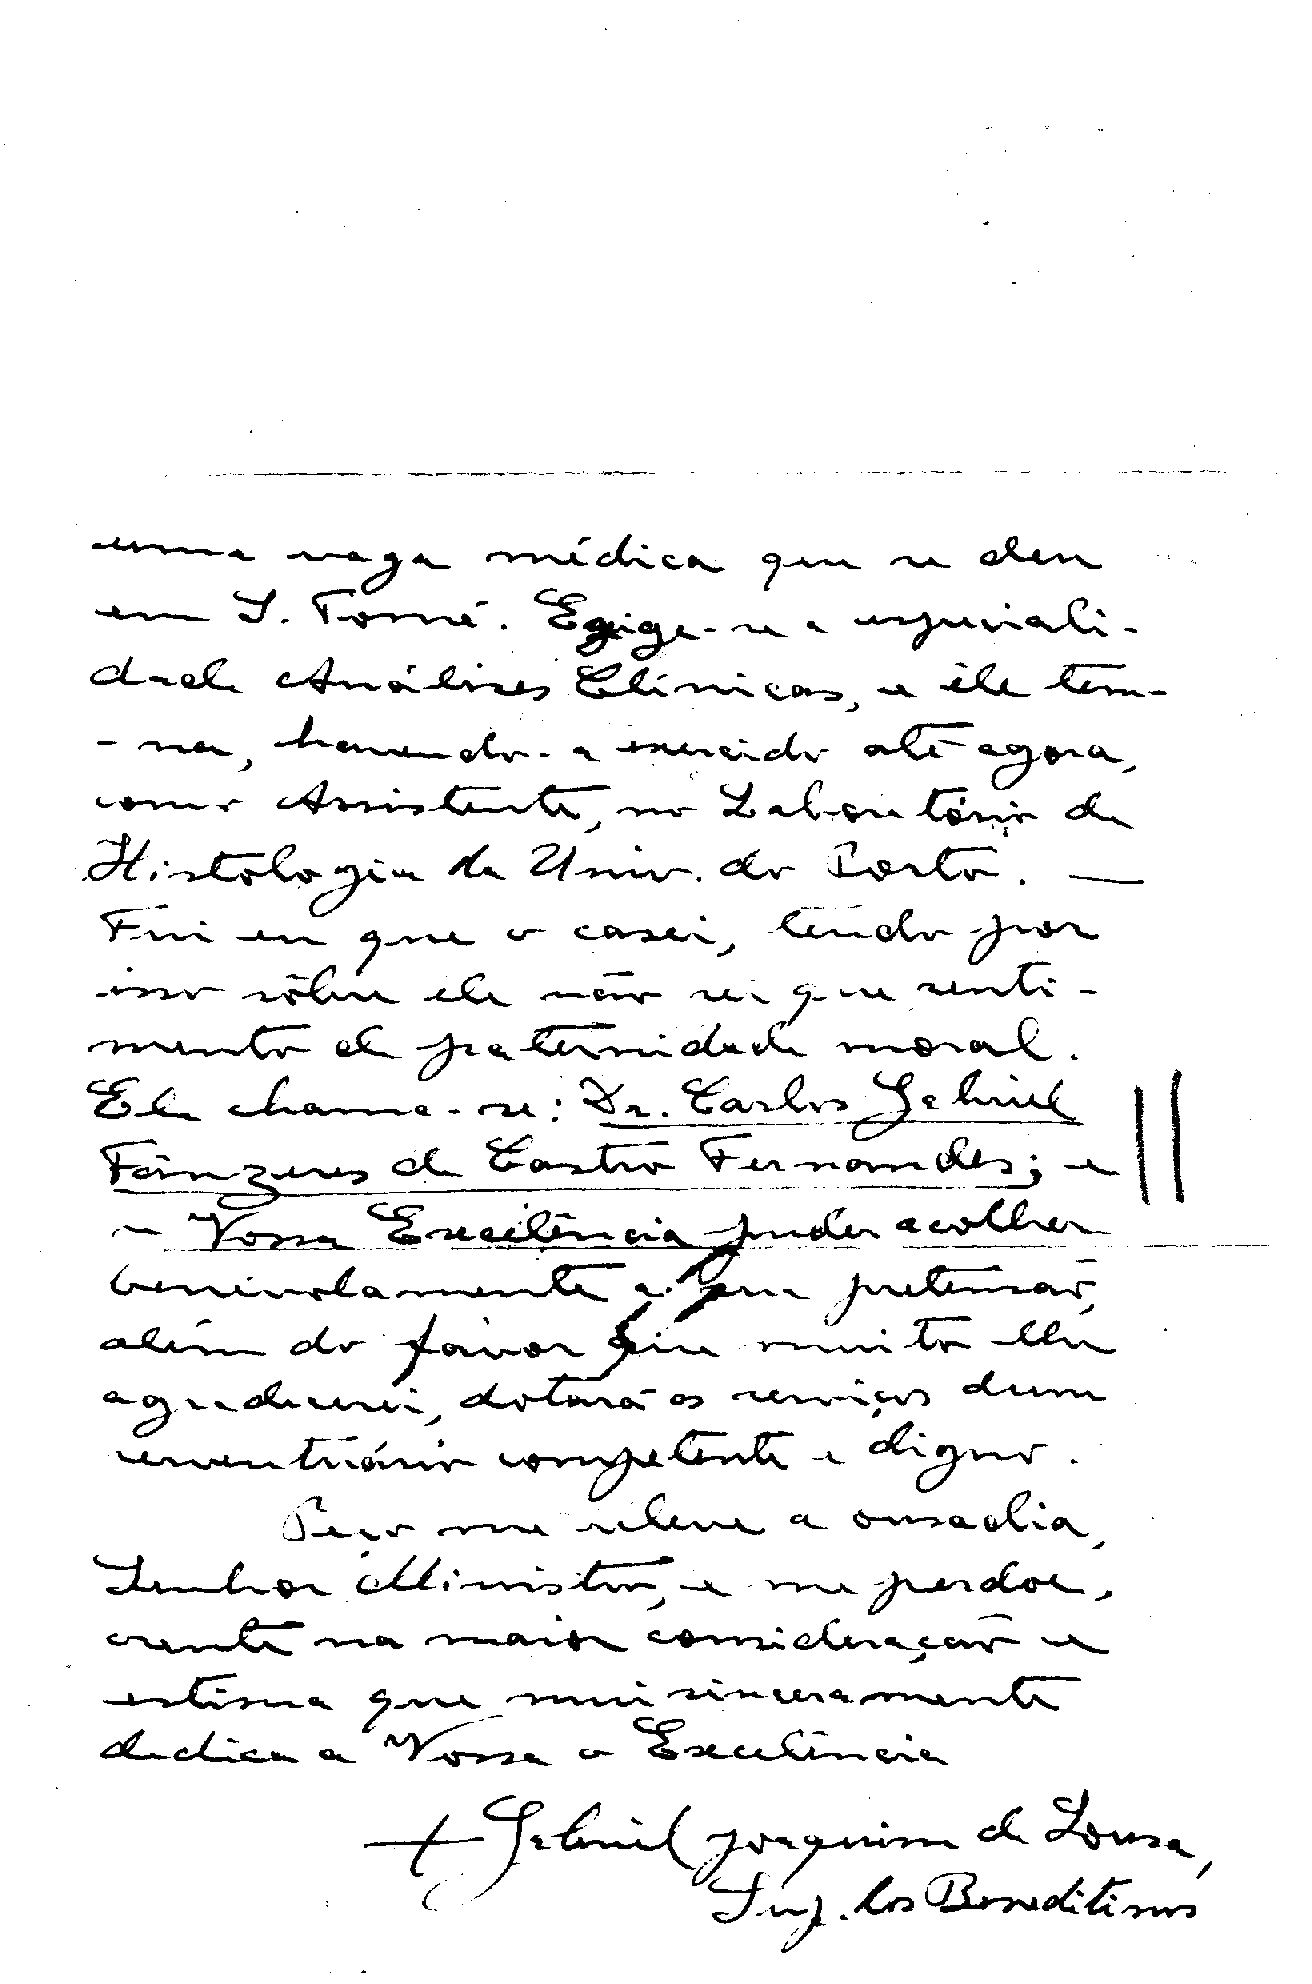 uma vaga médica que se deu
em S. Tomé. Exige-se a especiali-
dade Análises Clínicas, e êle tem-
-na, havendo-a exercido até agora,
como Assistente, no Laboratório de
Histologia da Univ. do Porto. —
Fui eu que o casei, tendo por
isso sôbre ele não sei que senti-
mento de paternidade moral.
Ele chama-se: Dr. Carlos Gabriel
Fânzeres de Castro Fernandes; e
se Vossa Excelência puder acolher
benevolamente a sua pretensão,
além do favor que muito lhe
agradecerei, dotará os serviços dum
serventuário competente e digno.
Peço me releve a ousadia,
Senhor Ministro, e me perdoe,
crente na maior consideração e
estima que mui sinceramente
dedica a Vossa Excelência
+ Gabriel Joaquim de Sousa,
Sup. dos Beneditinos